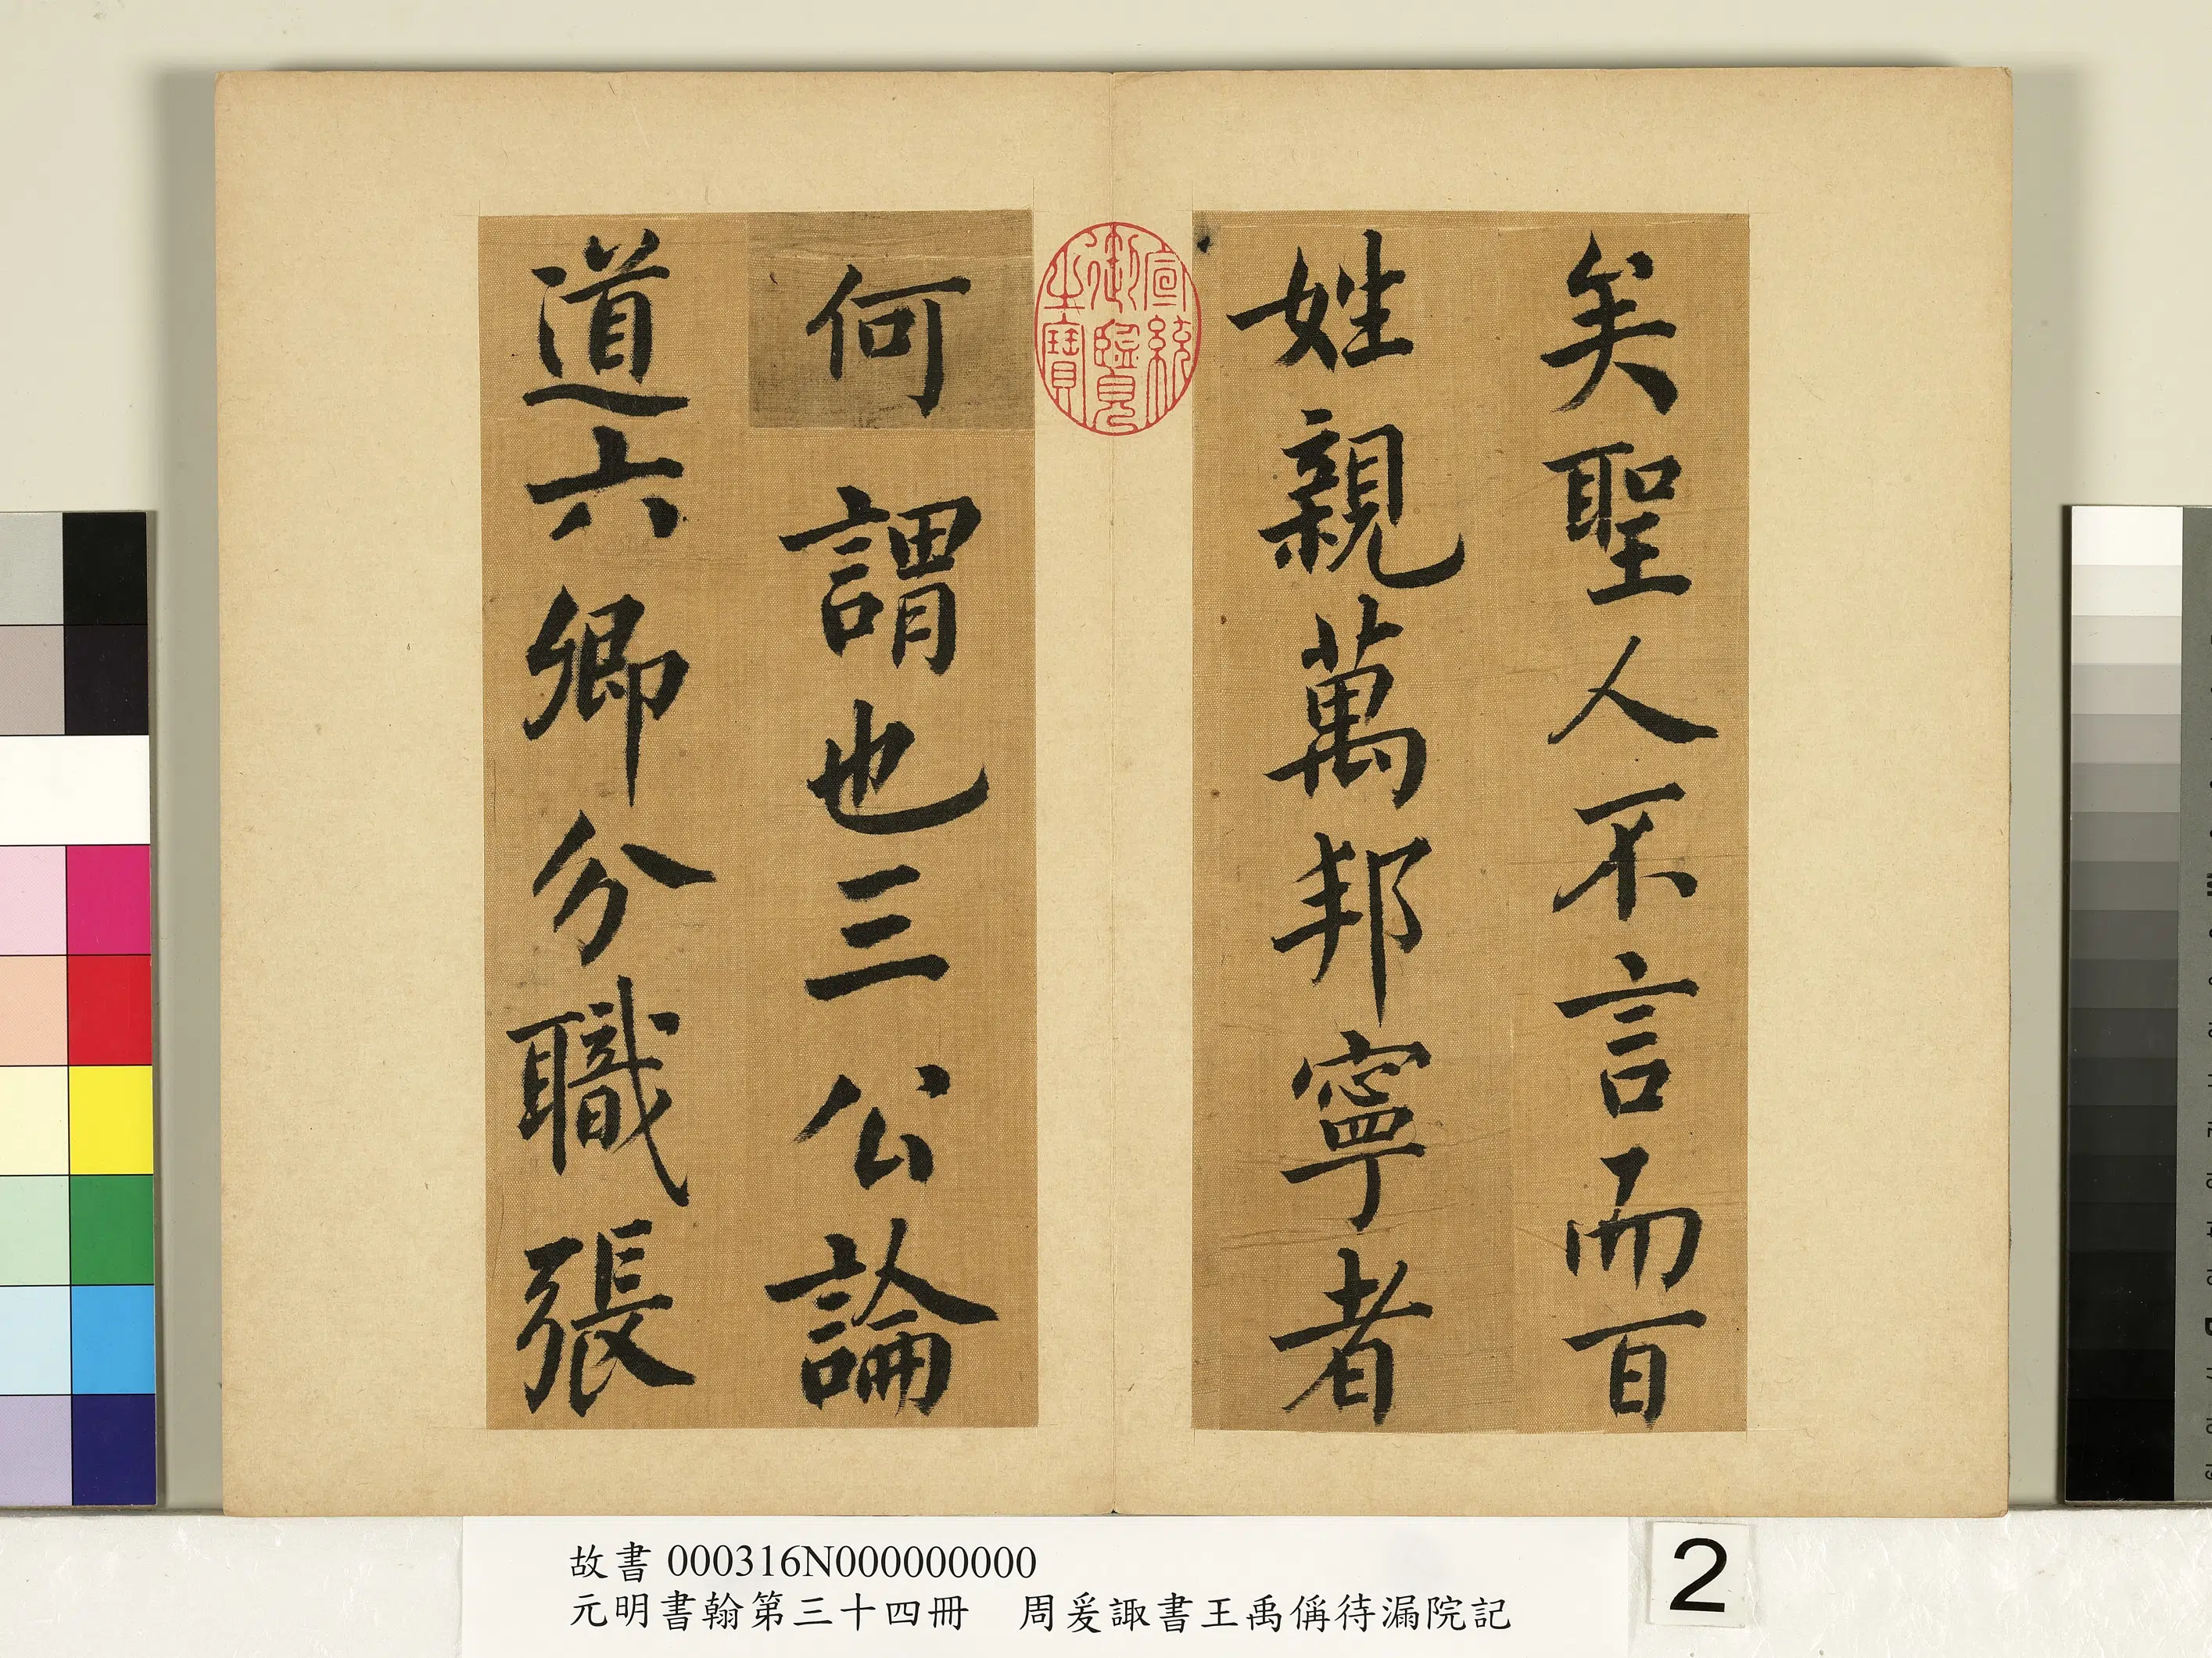 矣聖人不言而百
姓親萬邦寧者
宣統
御覽
之寶
何謂也三公論
道六卿分職張
故書 000316N000000000
元明書翰第三十四冊　周爰諏書王禹偁待漏院記
2